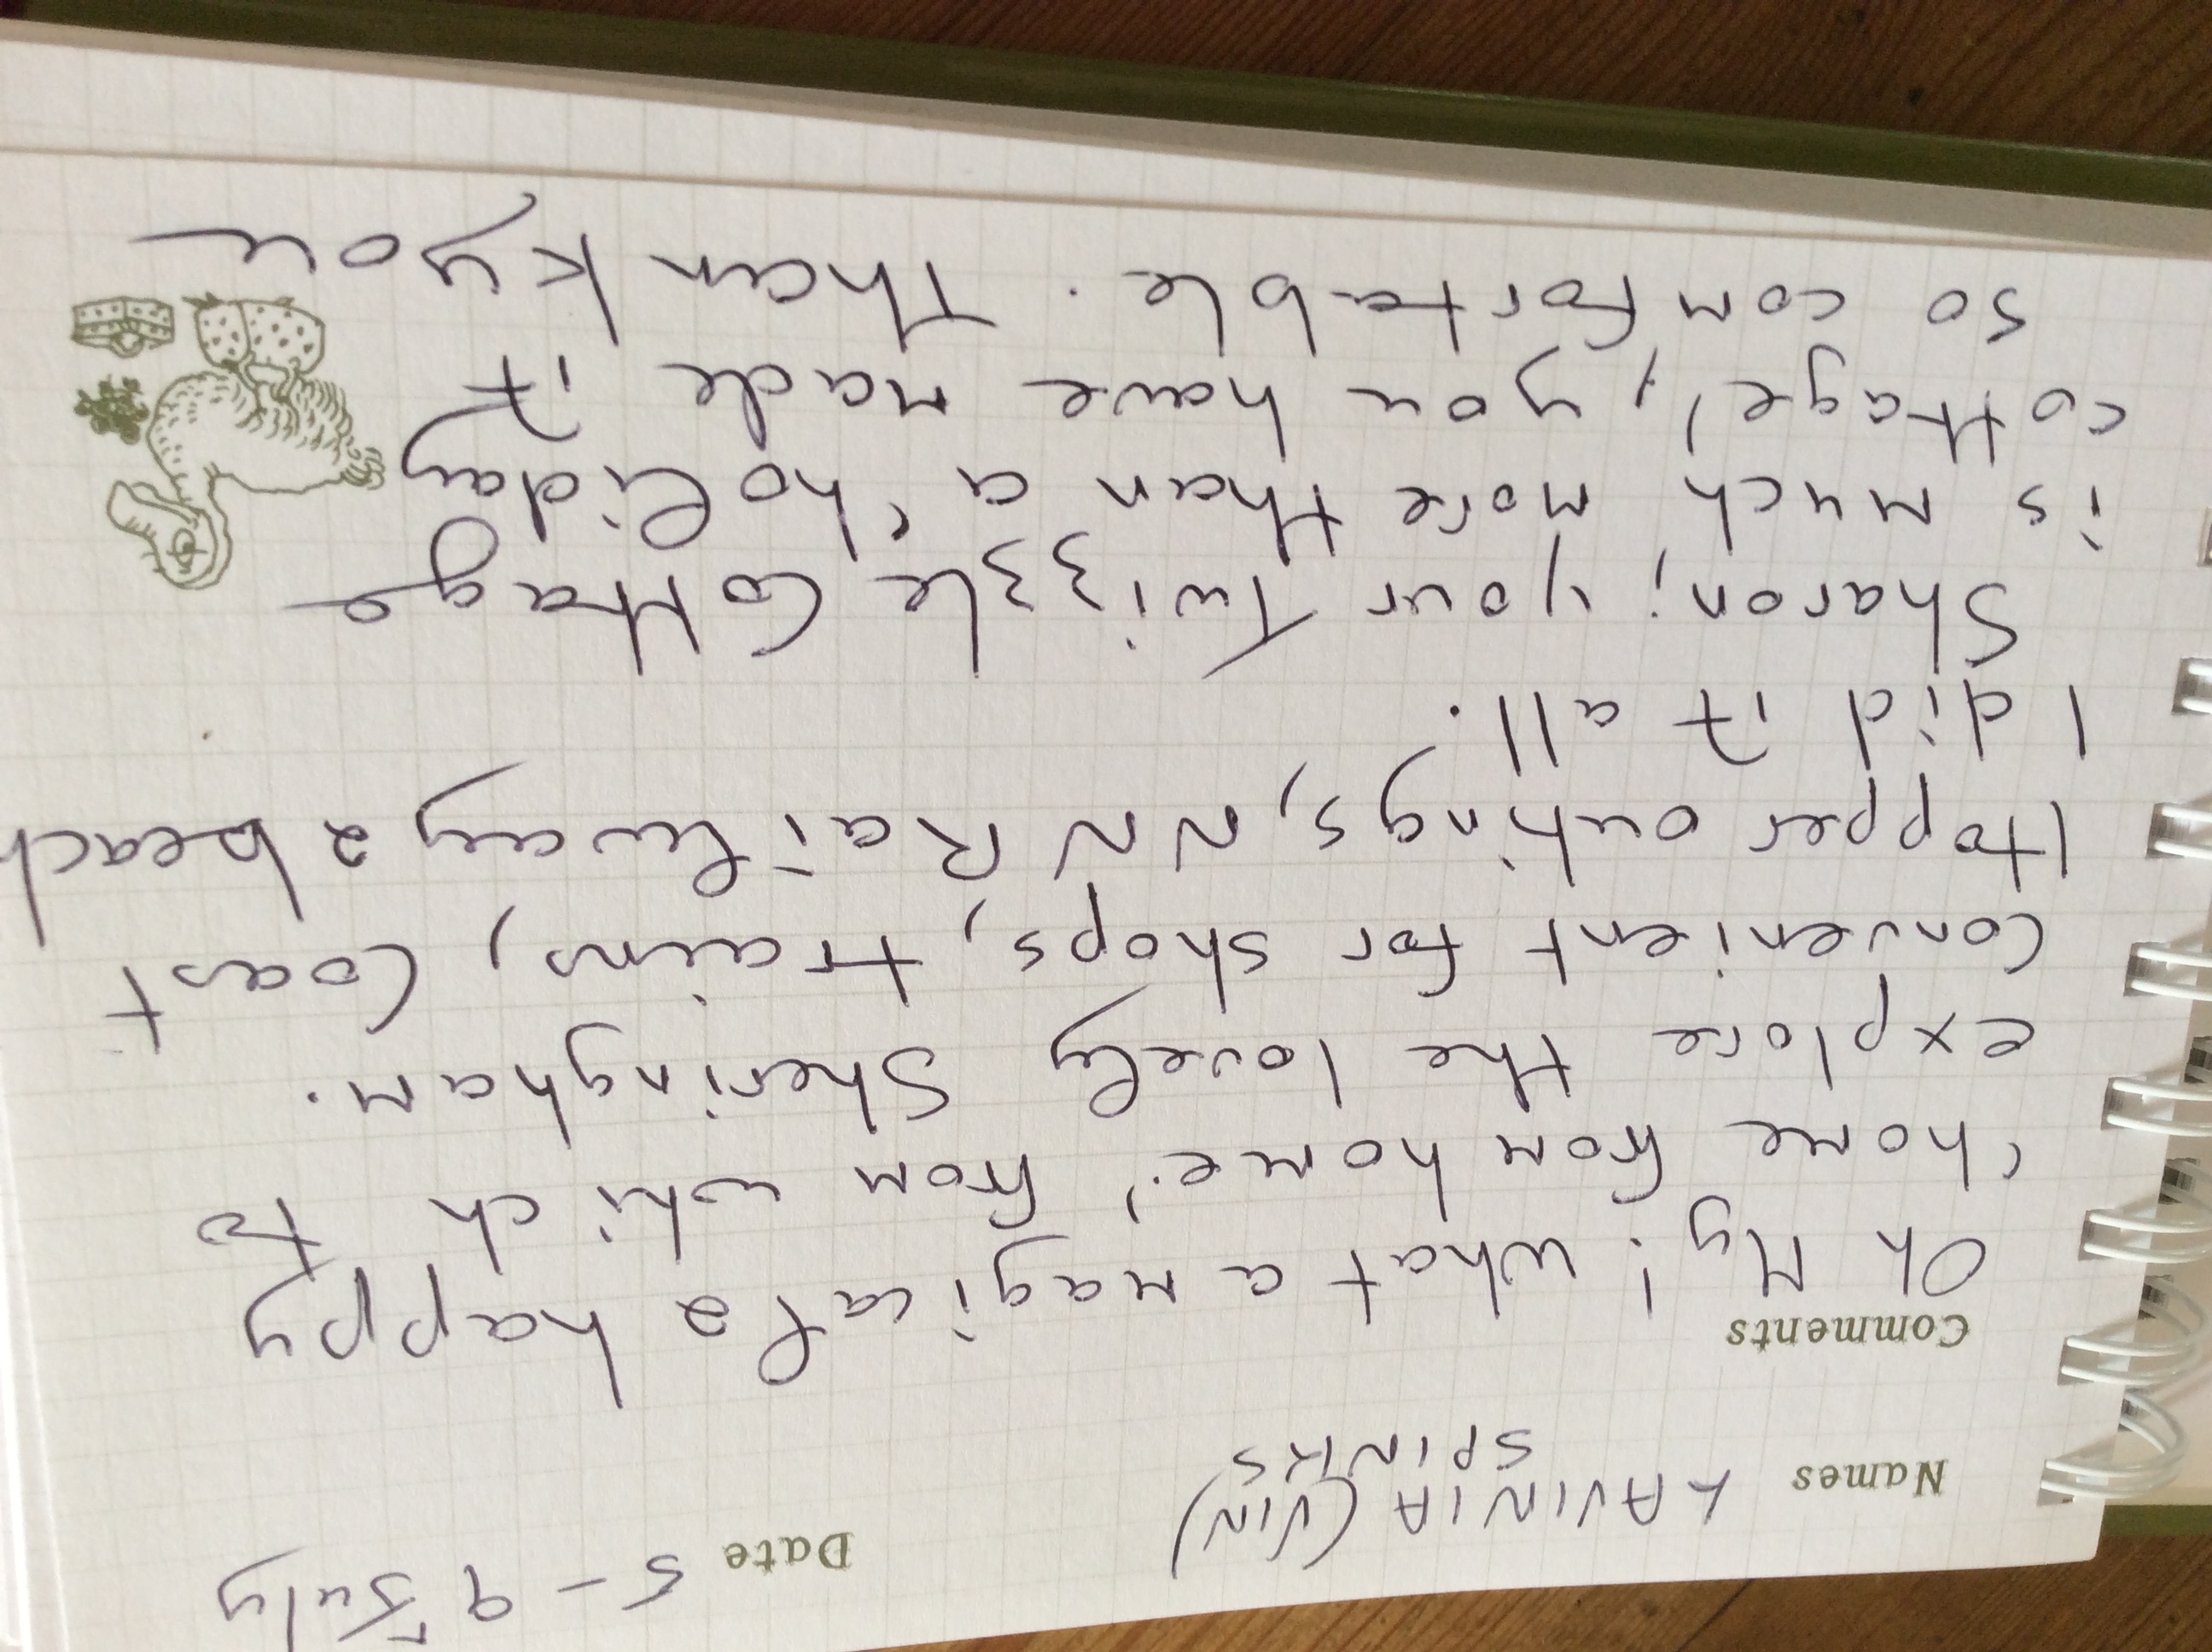 Names LAVINIA (VIN) Date 5-9 July
SPINKS
Comments
Oh My! what a magical & happy
'home from home', from which to
explore the lovely Sheringham.
Convenient for shops, trains, Coast
Hopper outings, NN Railway & beach
I did it all.
Sharon; your Twizzle Cottage
is much more than a 'holiday
cottage', you have made it
so comfortable. Thankyou